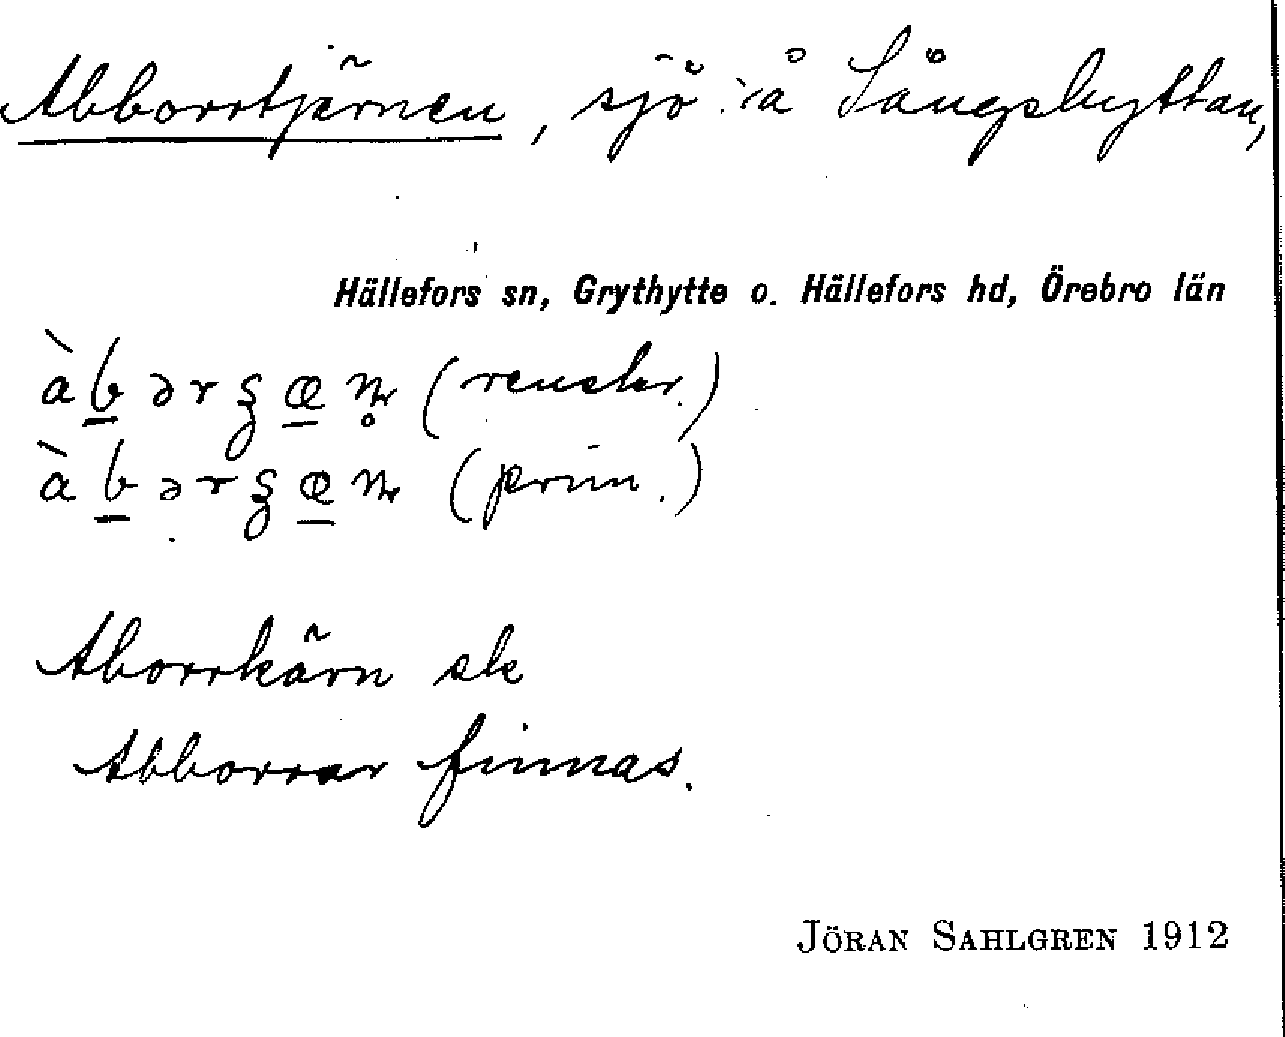 Abborrtjärnen, sjö å Sångshyttan,
Hällefors sn, Grythytte o. Hällefors hd, Örebro län
(renskr.)
(prim.)
Aborrkärn sk
Abborrar finnas.
JÖRAN SAHLGREN 1912